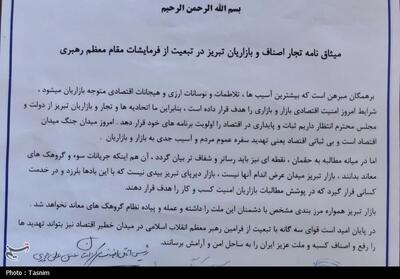 بسم الله الرحمن الرحیم
میثاق نامه تجار اصناف و بازاریان تبریز در تبعیت از فرمایشات مقام معظم رهبری
برهمگان مبرهن است که بیشترین آسیب ها ، تلاطمات و نوسانات ارزی و هیجانات اقتصادی متوجه بازاریان میشود ،
شرایط امروز امنیت اقتصادی بازار و بازاری را هدف قرار داده است ، بنابراین ما اتحادیه ها و تجار و بازاریان تبریز از دولت و
مجلس محترم انتظار داریم ثبات و پایداری در اقتصاد را اولویت برنامه های خود قرار دهد . امروز میدان جنگ میدان
اقتصاد است و بی ثباتی اقتصاد یعنی تهدید سفره عموم مردم و آسیب جدی به بازار و بازاریان .
اما در میانه مطالبه به حقمان ، نقطه ای نیز باید رساتر و شفاف تر بیان گردد ، آن هم اینکه جریانات سوء و گروهک های
معاند بدانند ، بازار تبریز میدان عرض اندام آنها نیست . بازار دیرپای تبریز بیدی نیست که با این بادها بلرزد و در خدمت
کسانی قرار گیرد که در پوشش مطالبات بازاریان امنیت کسب و کار را هدف قرار دهند.
بازار تبریز همواره مرز بندی مشخص با دشمنان این ملت را داشته و عمله و پیاده نظام گروهک های معاند نخواهد شد .
در پایان امید است قوای سه گانه با تبعیت از فرامین رهبر معظم انقلاب اسلامی در میدان خطیر اقتصاد نیز بتواند تهدید ها
را رفع و اصناف کسبه و ملت عزیز ایران را به ساحل امن و آرامش برسانند.
Photo : Tasnim